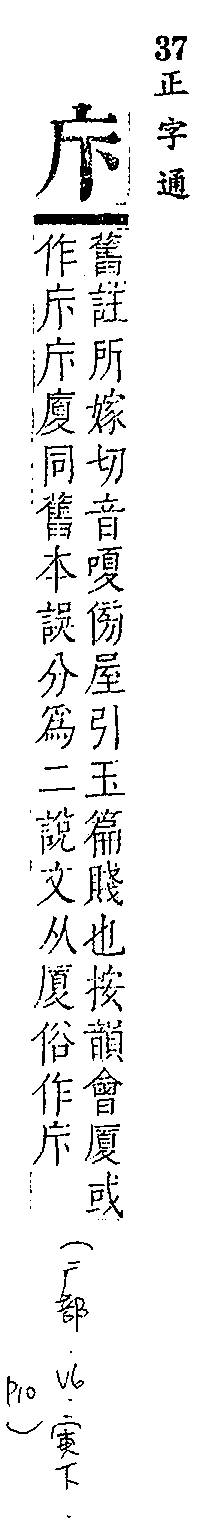 37 正字通
舊註所嫁切音嗄傍屋引玉篇賤也按韻會廈或
作廈同舊本誤分爲二說文从廈俗作
(广部．V6．寅下．
P10)